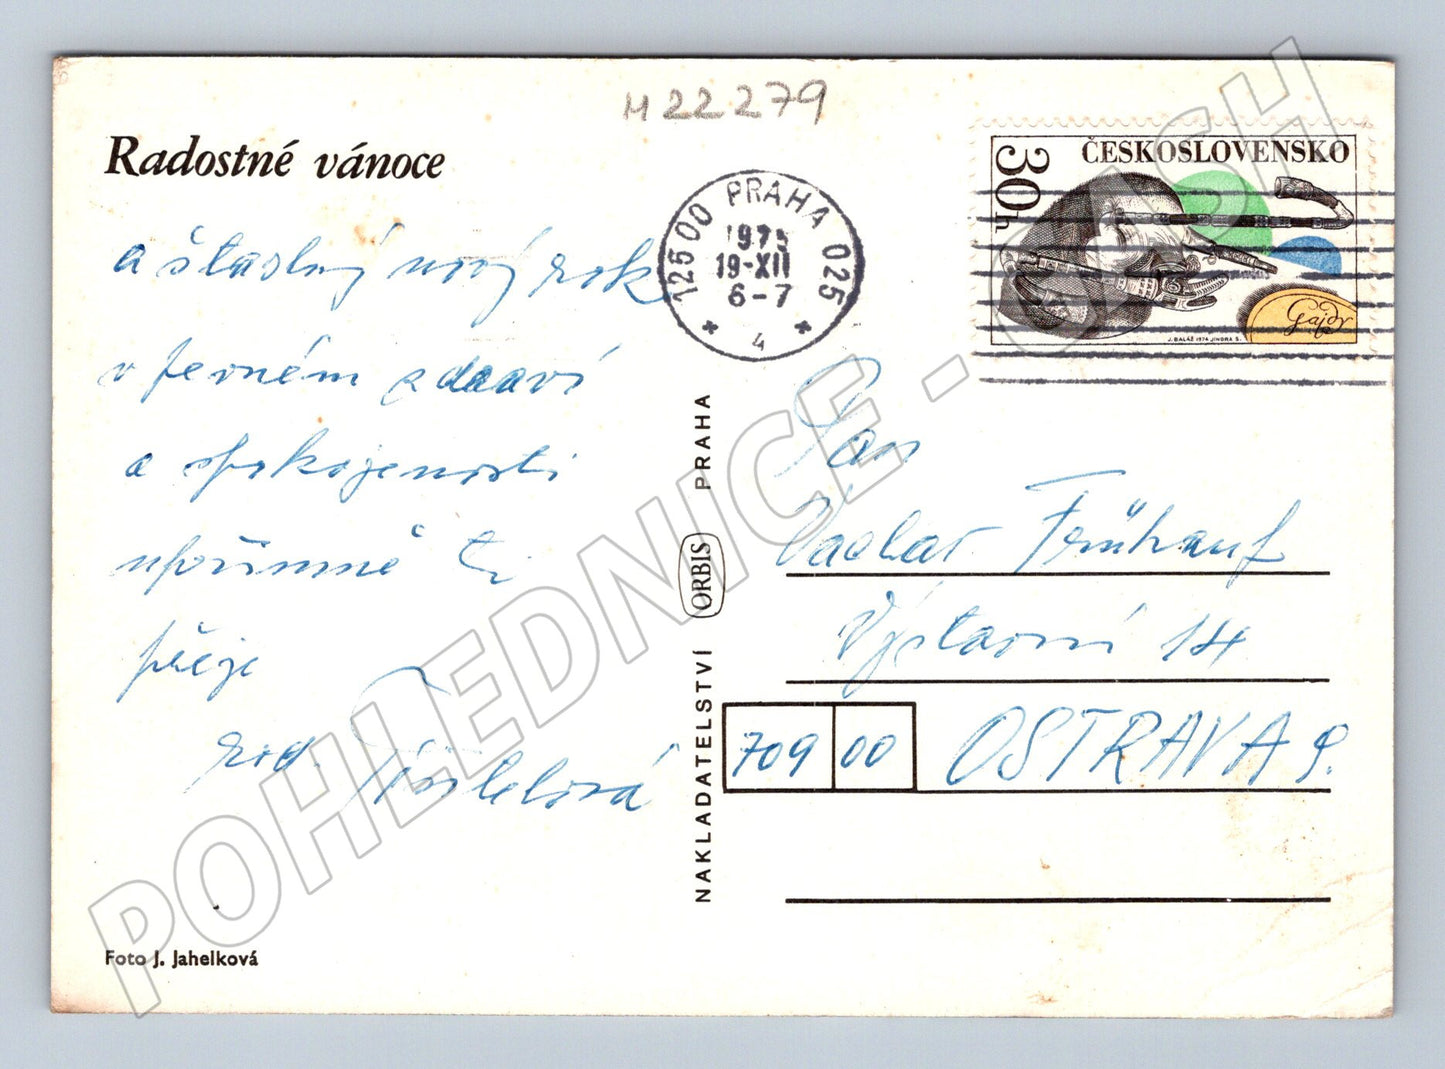 M 22279
Radostné vánoce
a šťastný nový rok
v pevném zdraví
a spokojenosti
upřímně Ti
přeje
rod.
Foto J. Jahelková
NAKLADATELSTVÍ ORBIS PRAHA
125 00 PRAHA 025
1975
19-XII
6-7
4
30h
ČESKOSLOVENSKO
Gajdy
J. BALÁŽ 1974 JINDRA S.
Pan
Václav Frühauf
Výstavní 14
709 00 OSTRAVA 9.
POHLEDNICE - CASH